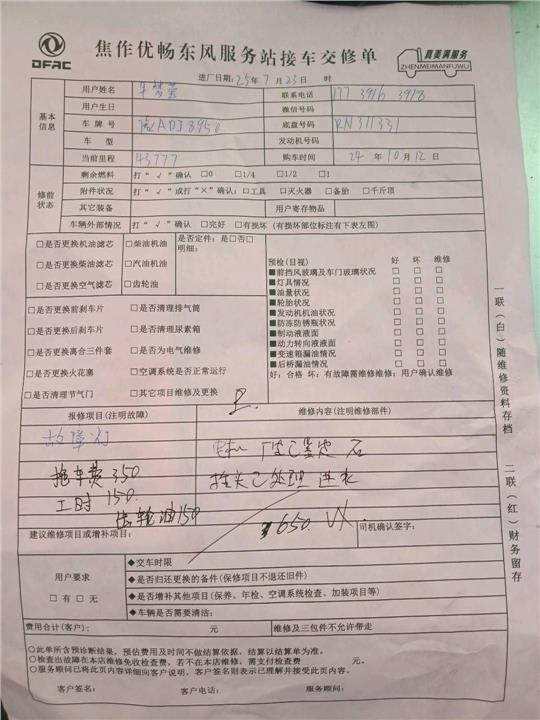 DFAC
焦作优畅东风服务站接车交修单
真美满服务
ZHENMEIMANFUWU
进厂日期:25年7月23日 时
基本信息
用户姓名 联系电话 177 3916 3918
用户生日 微信号码
车牌号 ADJ8950 底盘号码 RN311331
车型 发动机号码
当前里程 43777 购车时间 24年10月12日
修前状态
剩余燃料 打“√”确认 □0 □1/4 □1/2 □1
附件状况 打“√”或打“×”确认:□工具 □灭火器 □备胎 □千斤顶
其它装备 用户寄存物品
车辆外部情况 打“√”确认 □完好 □有损坏(有损坏部位标注有下表左图)
□是否更换机油滤芯 □柴油机油 是否定件:是□否□
明细:
□是否更换柴油滤芯 □汽油机油
□是否更换空气滤芯 □齿轮油
预检(目视) 好 坏 维修
■前挡风玻璃及车门玻璃状况 □ □ □
■灯具情况 □ □ □
■油量状况 □ □ □
■轮胎状况 □ □ □
■发动机机油状况 □ □ □
■防冻防锈瓶状况 □ □ □
■制动液液面 □ □ □
■动力转向液液面 □ □ □
■变速箱漏油情况 □ □ □
■后桥漏油情况 □ □ □
好:合格 坏:有故障需维修维修:用户确认维修
□是否更换前刹车片 □是否清理排气筒
□是否更换后刹车片 □是否清理尿素箱
□是否更换离合三件套 □是否为电气维修
□是否更换火花塞 □空调系统是否正常运行
□是否清理节气门 □其它项目维修及更换
报修项目(注明故障) 维修内容(注明维修部件)
故障灯
拖车费350
工时150.
齿轮油150
接头已处理 进水
650.
建议维修项目或增补项目: 司机确认签字:
用户要求
□有 □无
◆交车时限
◆是否归还更换的备件(保修项目不退还旧件)
◆是否增补其他项目(保养、年检、空调系统检查、加装项目等)
◆车辆是否需要清洁:
费用合计(客户): 元 维修及三包件不允许带走
○此单所含预诊断结果,预估费用及时间不做结算依据,结算以结算单为准。
○检查出故障在本店维修免收检查费,若不在本店维修,需支付检查费 元。
○服务顾问已将此页内容详细向客户说明,客户签名则表示已理解并接受此页内容。
客户签名: 客户电话: 服务顾问:
一联(白)随维修资料存档 二联(红)财务留存